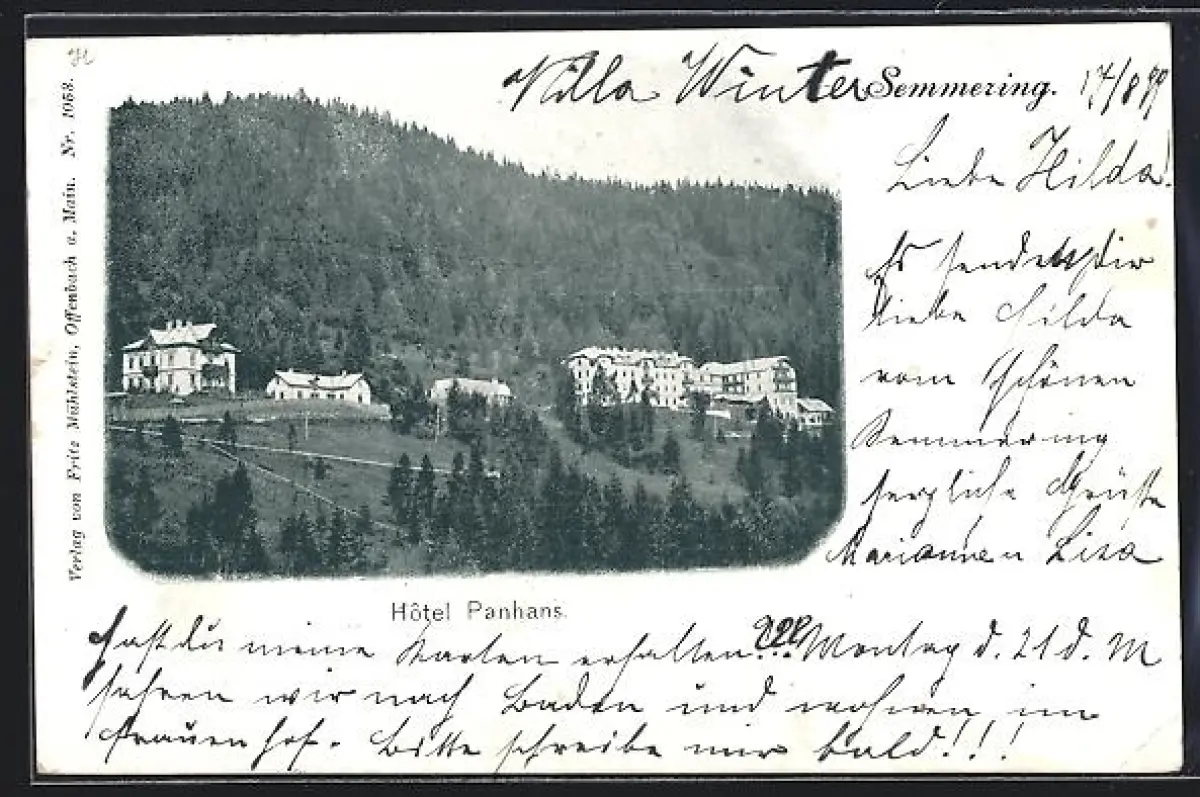 Villa Winter Semmering. 17/8 99
Liebe Hilda!
Es sendet Dir
liebe Hilda
vom schönen
Semmering
herzliche Grüße
Marianne u Lisa
Hôtel Panhans.
Hast du meine Karten erhalten??? Montag d. 21 d. M
fahren wir nach Baden und wohnen im
Frauenhof. Bitte schreibe mir bald!!!
Verlag von Fritz Mühlstein, Offenbach a. Main. Nr. 1053.